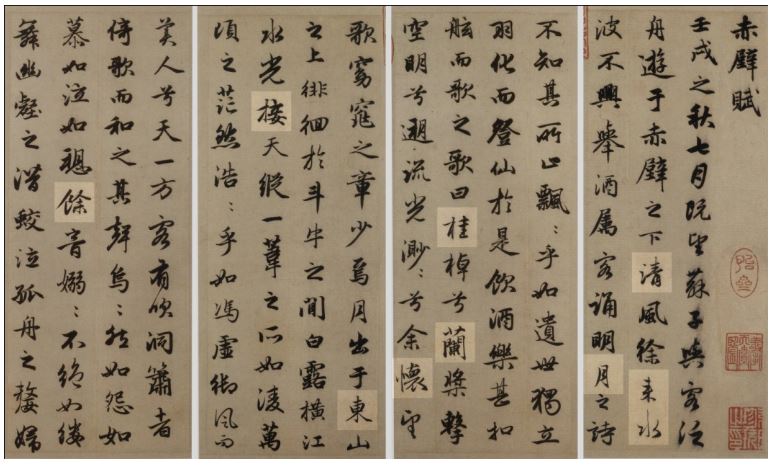 赤壁賦
壬戌之秋七月既望蘇子與客泛
舟遊于赤壁之下清風徐來水
波不興舉酒属客誦明月之詩
不知其所止飄々乎如遺世獨立
羽化而登仙於是飲酒樂甚扣
舷而歌之歌曰桂棹兮蘭槳擊
空明兮遡流光渺々兮余懷望
歌窈窕之章少焉月出于東山
之上徘徊於斗牛之間白露橫江
水光接天縱一葦之所如凌萬
頃之茫然浩々乎如馮虛御風而
美人兮天一方客有吹洞簫者
倚歌而和之其聲烏々然如怨如
慕如泣如愬餘音嫋々不絕如縷
舞幽壑之潛蛟泣孤舟之嫠婦